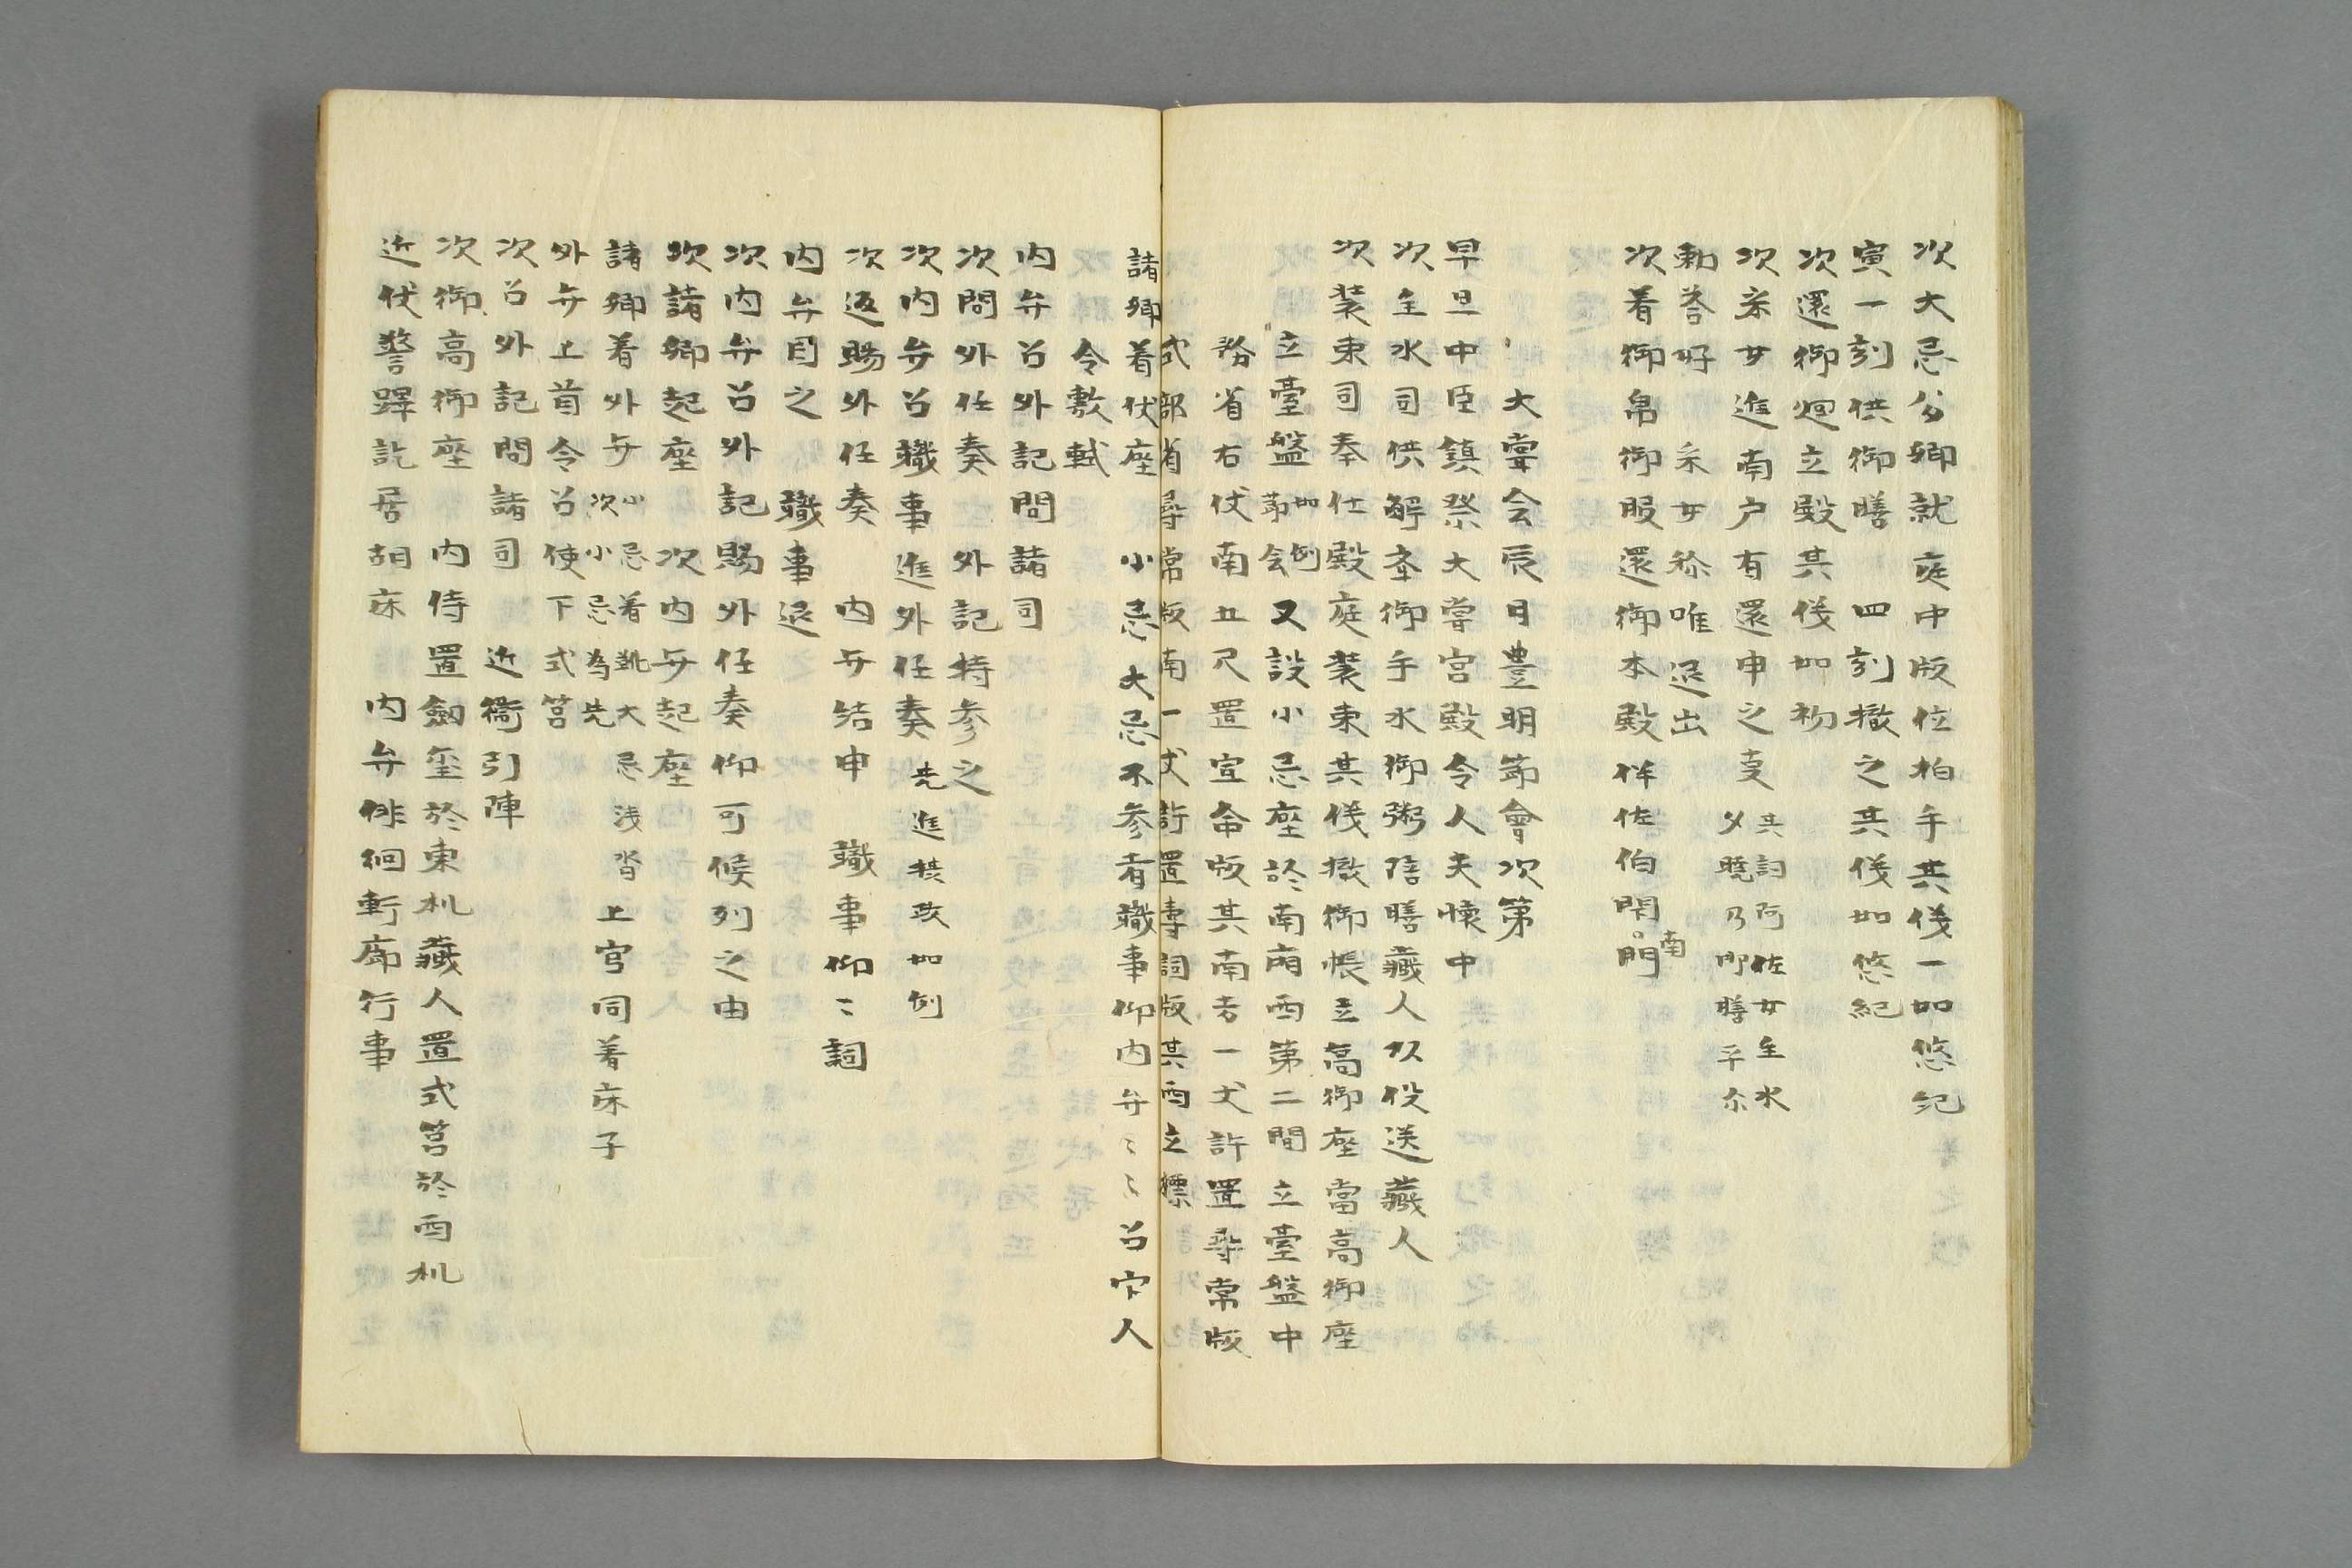 次大忌公卿就庭中版位拍手其儀一如悠紀
寅一刻供御膳　四刻撤之其儀如悠紀
次還御廻立殿其儀如初
次采女進南户有還申之叓　其詞阿佐女主水
夕暁乃御膳平尓
勅荅好　采女称唯退出
次着御帛御服還御本殿伴佐伯閇南門
大嘗会辰日豊明節會次第
早旦中臣鎮祭大嘗宮殿令人夫懐中
次主水司供解斎御手水御粥陪膳蔵人頭役送蔵人
次装束司奉仕殿庭装束其儀撤御帳立高御座當高御座
立臺盤　如例節会　又設小忌座於南廂西第二間立臺盤中
務省右伏南五尺置宣命版其南去一丈許置尋常版
式部省尋常版南一丈許置専詞版其西立標
諸卿着伏座　小忌大忌不参着職事仰内弁々々召官人
令敷軾
内弁召外記問諸司
次問外任奏　外記持参之
次内弁召職事進外任奏　先進披改如例
次返賜外任奏　内弁結申　職事仰〻詞
内弁目之　職事退
次内弁召外記賜外任奏仰可候列之由
次諸卿起座　次内弁起座
諸卿着外弁　小忌着靴大忌浅沓　上官同着床子
次小忌為先
外弁上首令召使下式筥
次召外記問諸司　近衛引陣
次御高御座　内侍置剱璽於東机蔵人置式筥於西机
近伏警蹕訖居胡床　内弁俳徊軒廊行事